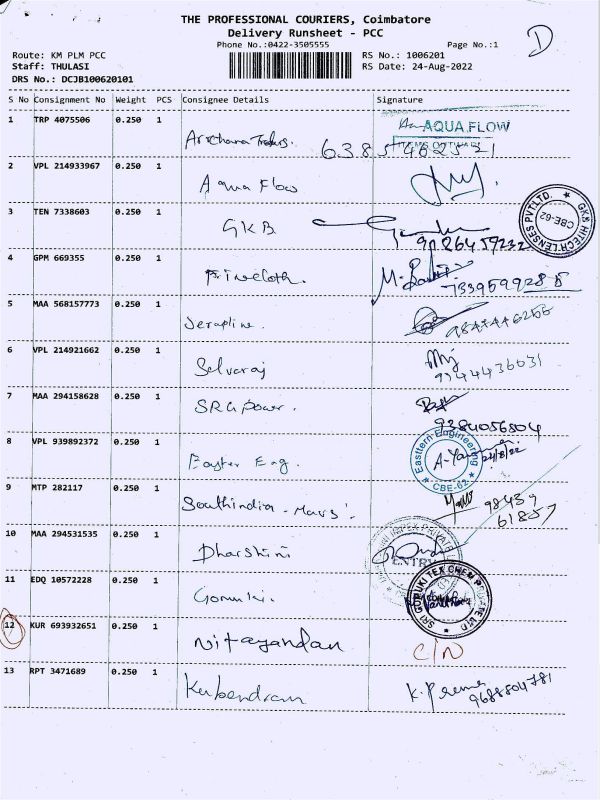 THE PROFESSIONAL COURIERS, Coimbatore
Delivery Runsheet - PCC
Phone No.:0422-3505555 Page No.:1
D
Route: KM PLM PCC RS No.: 1006201
Staff: THULASI RS Date: 24-Aug-2022
DRS No.: DCJB100620101
S No Consignment No Weight PCS Consignee Details Signature
1 TRP 4075506 0.250 1 Archana Traders. AQUA FLOW
2 VPL 214933967 0.250 1 Aqua Flow
3 TEN 7338603 0.250 1 GKB
GKB HITECH LENSES PVT LTD. CBE-62
4 GPM 669355 0.250 1 Finecloth. 7339599288
5 MAA 568157773 0.250 1 Serapline.
6 VPL 214921662 0.250 1 Selvaraj
7 MAA 294158628 0.250 1 SRG power. 9384056504
8 VPL 939892372 0.250 1 Easter Eng. Eastern Engineering CBE-62 24/8/22
9 MTP 282117 0.250 1 Southindia - Mars'. 98439
61857
10 MAA 294531535 0.250 1 Dharshini ENTRY
11 EDQ 10572228 0.250 1 SRI GURUKI TEX CHEM PRIVATE LTD
12 KUR 693932651 0.250 1 Nitayandan C/N
13 RPT 3471689 0.250 1 Kubendran K. Prema
9688804781